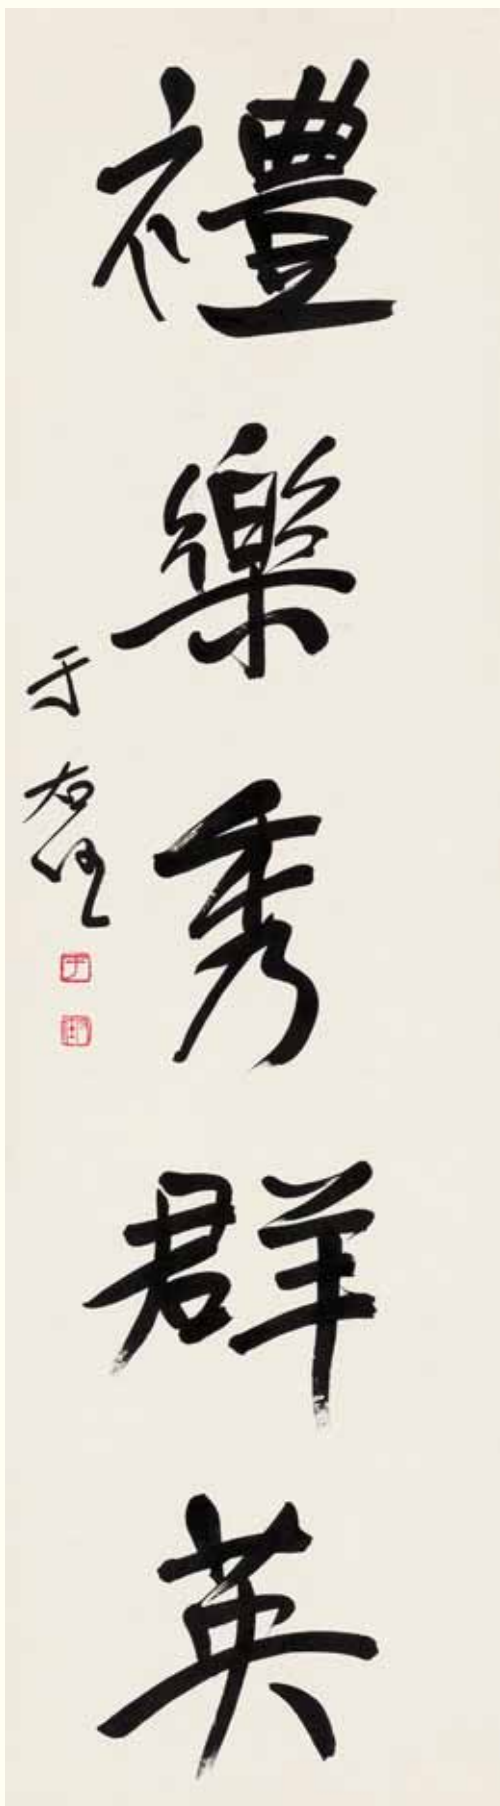 禮樂秀群英
于右任